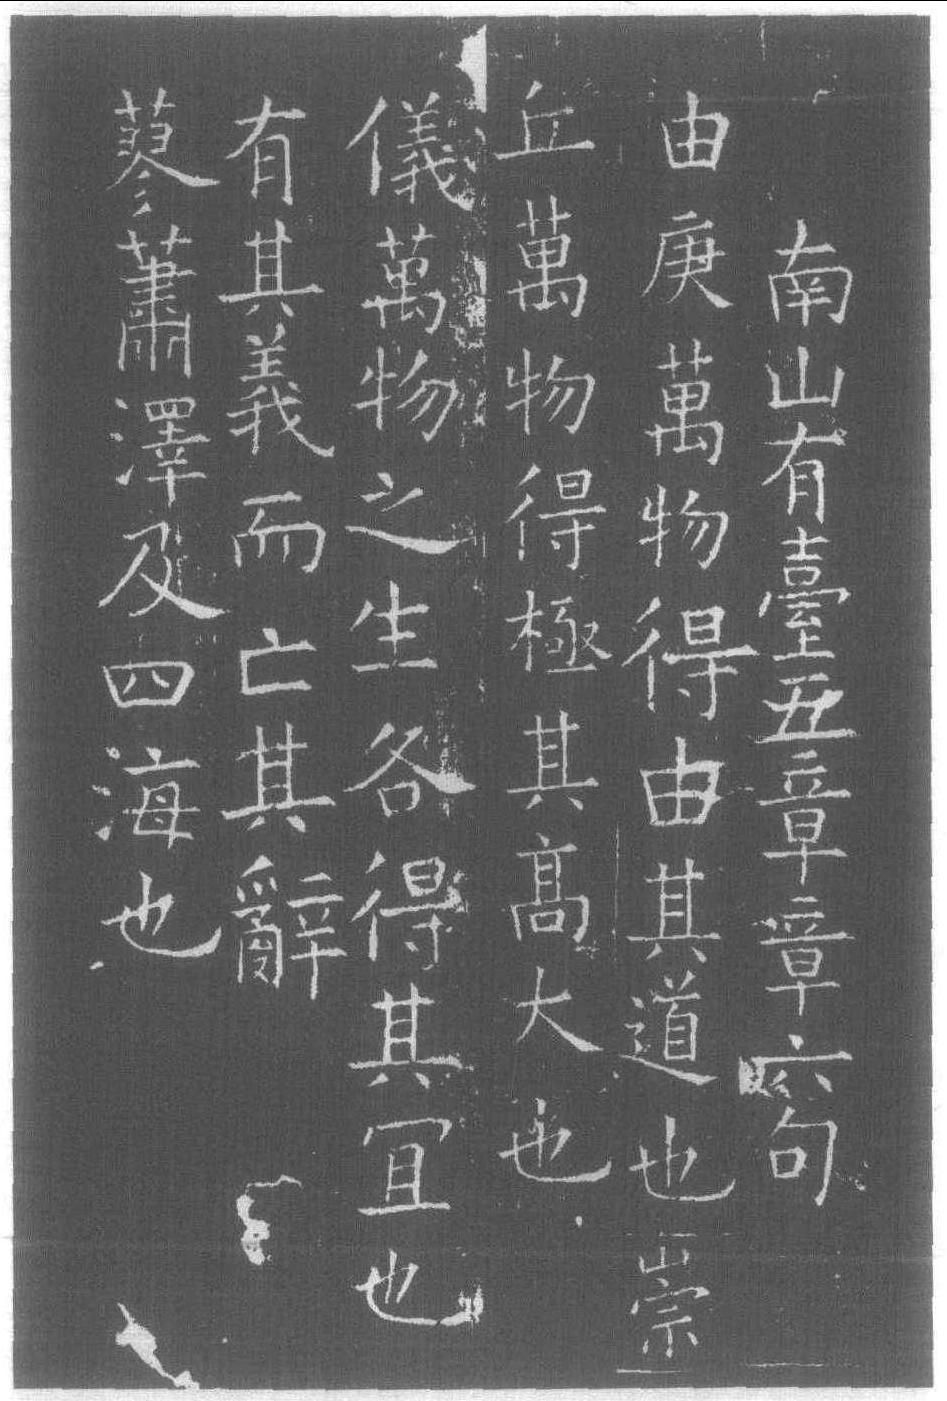 南山有臺五章章六句
由庚萬物得由其道也崇
丘萬物得極其髙大也由
儀萬物之生各得其宜也
有其義而亡其辭
蓼蕭澤及四海也